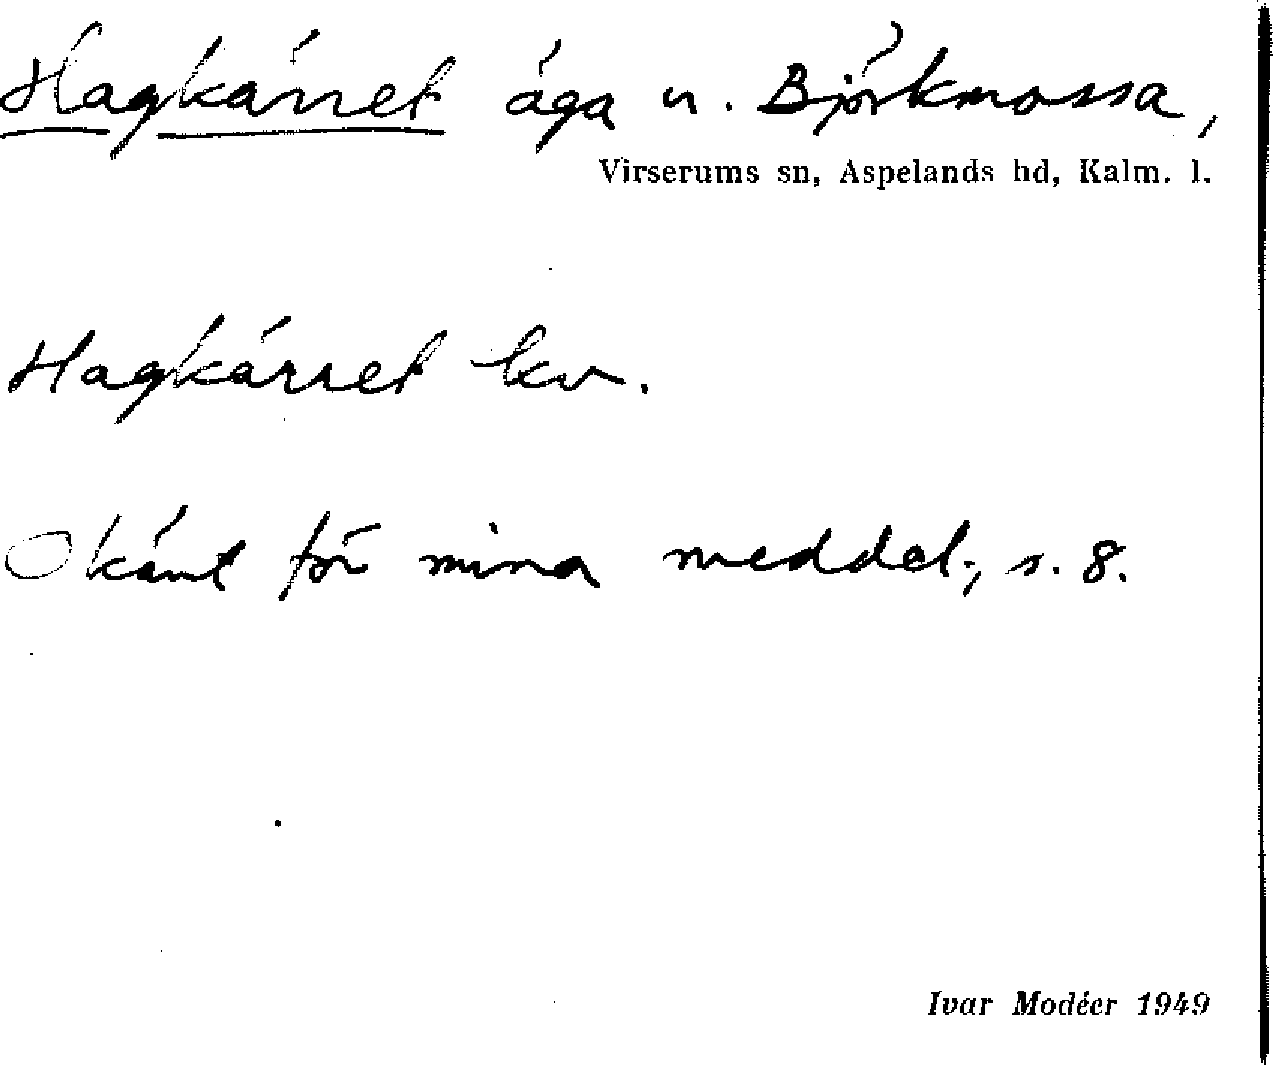 Hagkärret äga u. Björkmossa,
Virserums sn, Aspelands hd, Kalm. l.
Hagkärret kv.
Okänt för mina meddel., s. 8.
Ivar Modéer 1949